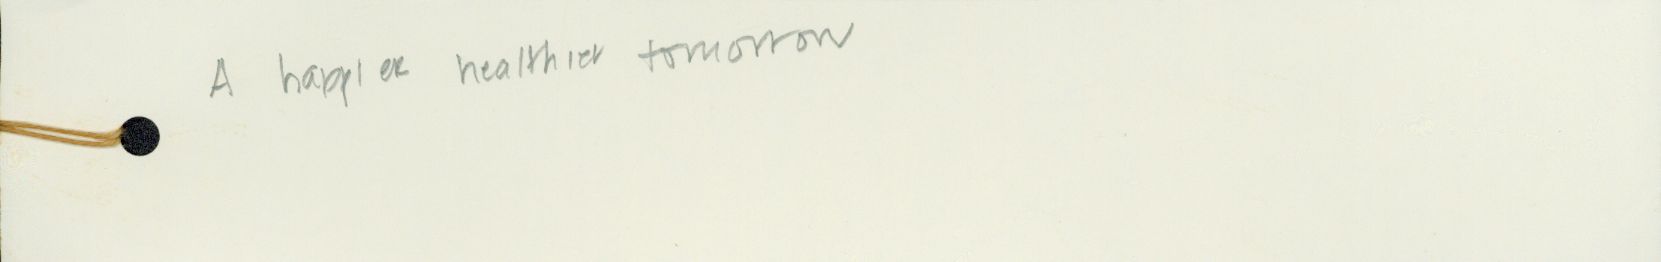 A happier healthier tomorrow